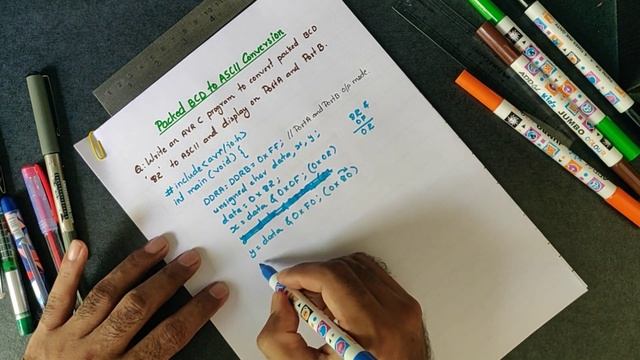 Packed BCD to ASCII Conversion
Q. Write an avr C program to convert packed BCD
'82' to ASCII and display on PortA and PortB.
#include<avr/io.h>
int main (void) {
DDRA=DDRB=0xFF; // PortA and PortB o/p mode
unsigned char data, x, y;
data = 0x82;
x = data & 0x0F; (0x02)
y = data & 0xF0; (0x80)
82 &
0F
02
JUMBO